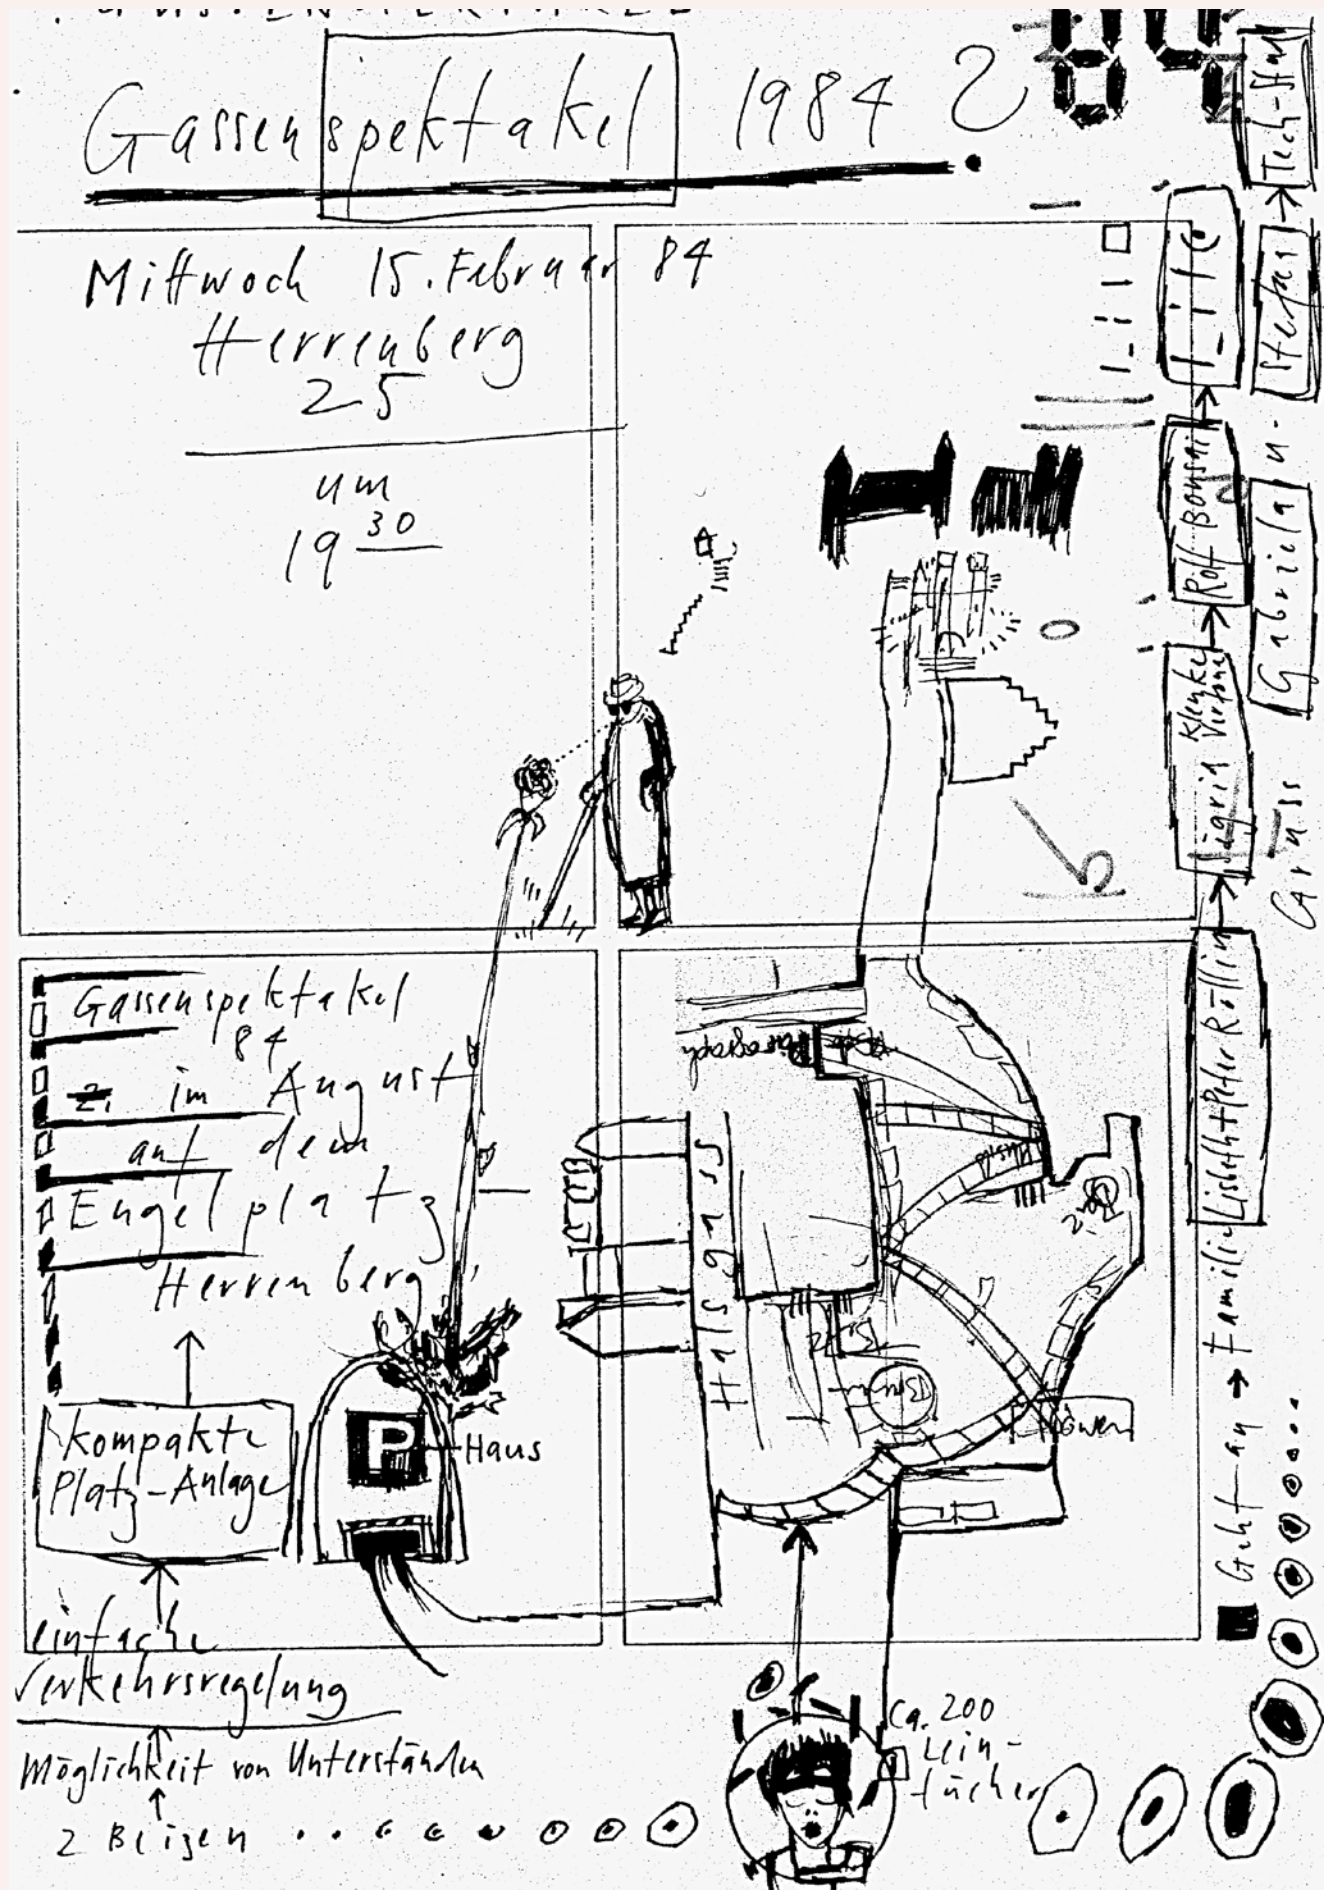 Gassenspektakel 1984
84
Mittwoch 15. Februar 84
Herrenberg
25
um
19 30
Gassenspektakel
84
im August
auf dem
Engelplatz
Herrenberg
kompakte
Platz-Anlage
P
Haus
einfache
Verkehrsregelung
Möglichkeit von Unterständen
2 Beizen
Paragraph
Halsgass
Musik
Brunn
Löwen
ca. 200
Lein-
tücher
Geht an → Familie Lisbeth + Peter Röllin → Sigrid → Rolf Bonsai → Life
Gruss Gabriela u. Stefan → Tech-Stab